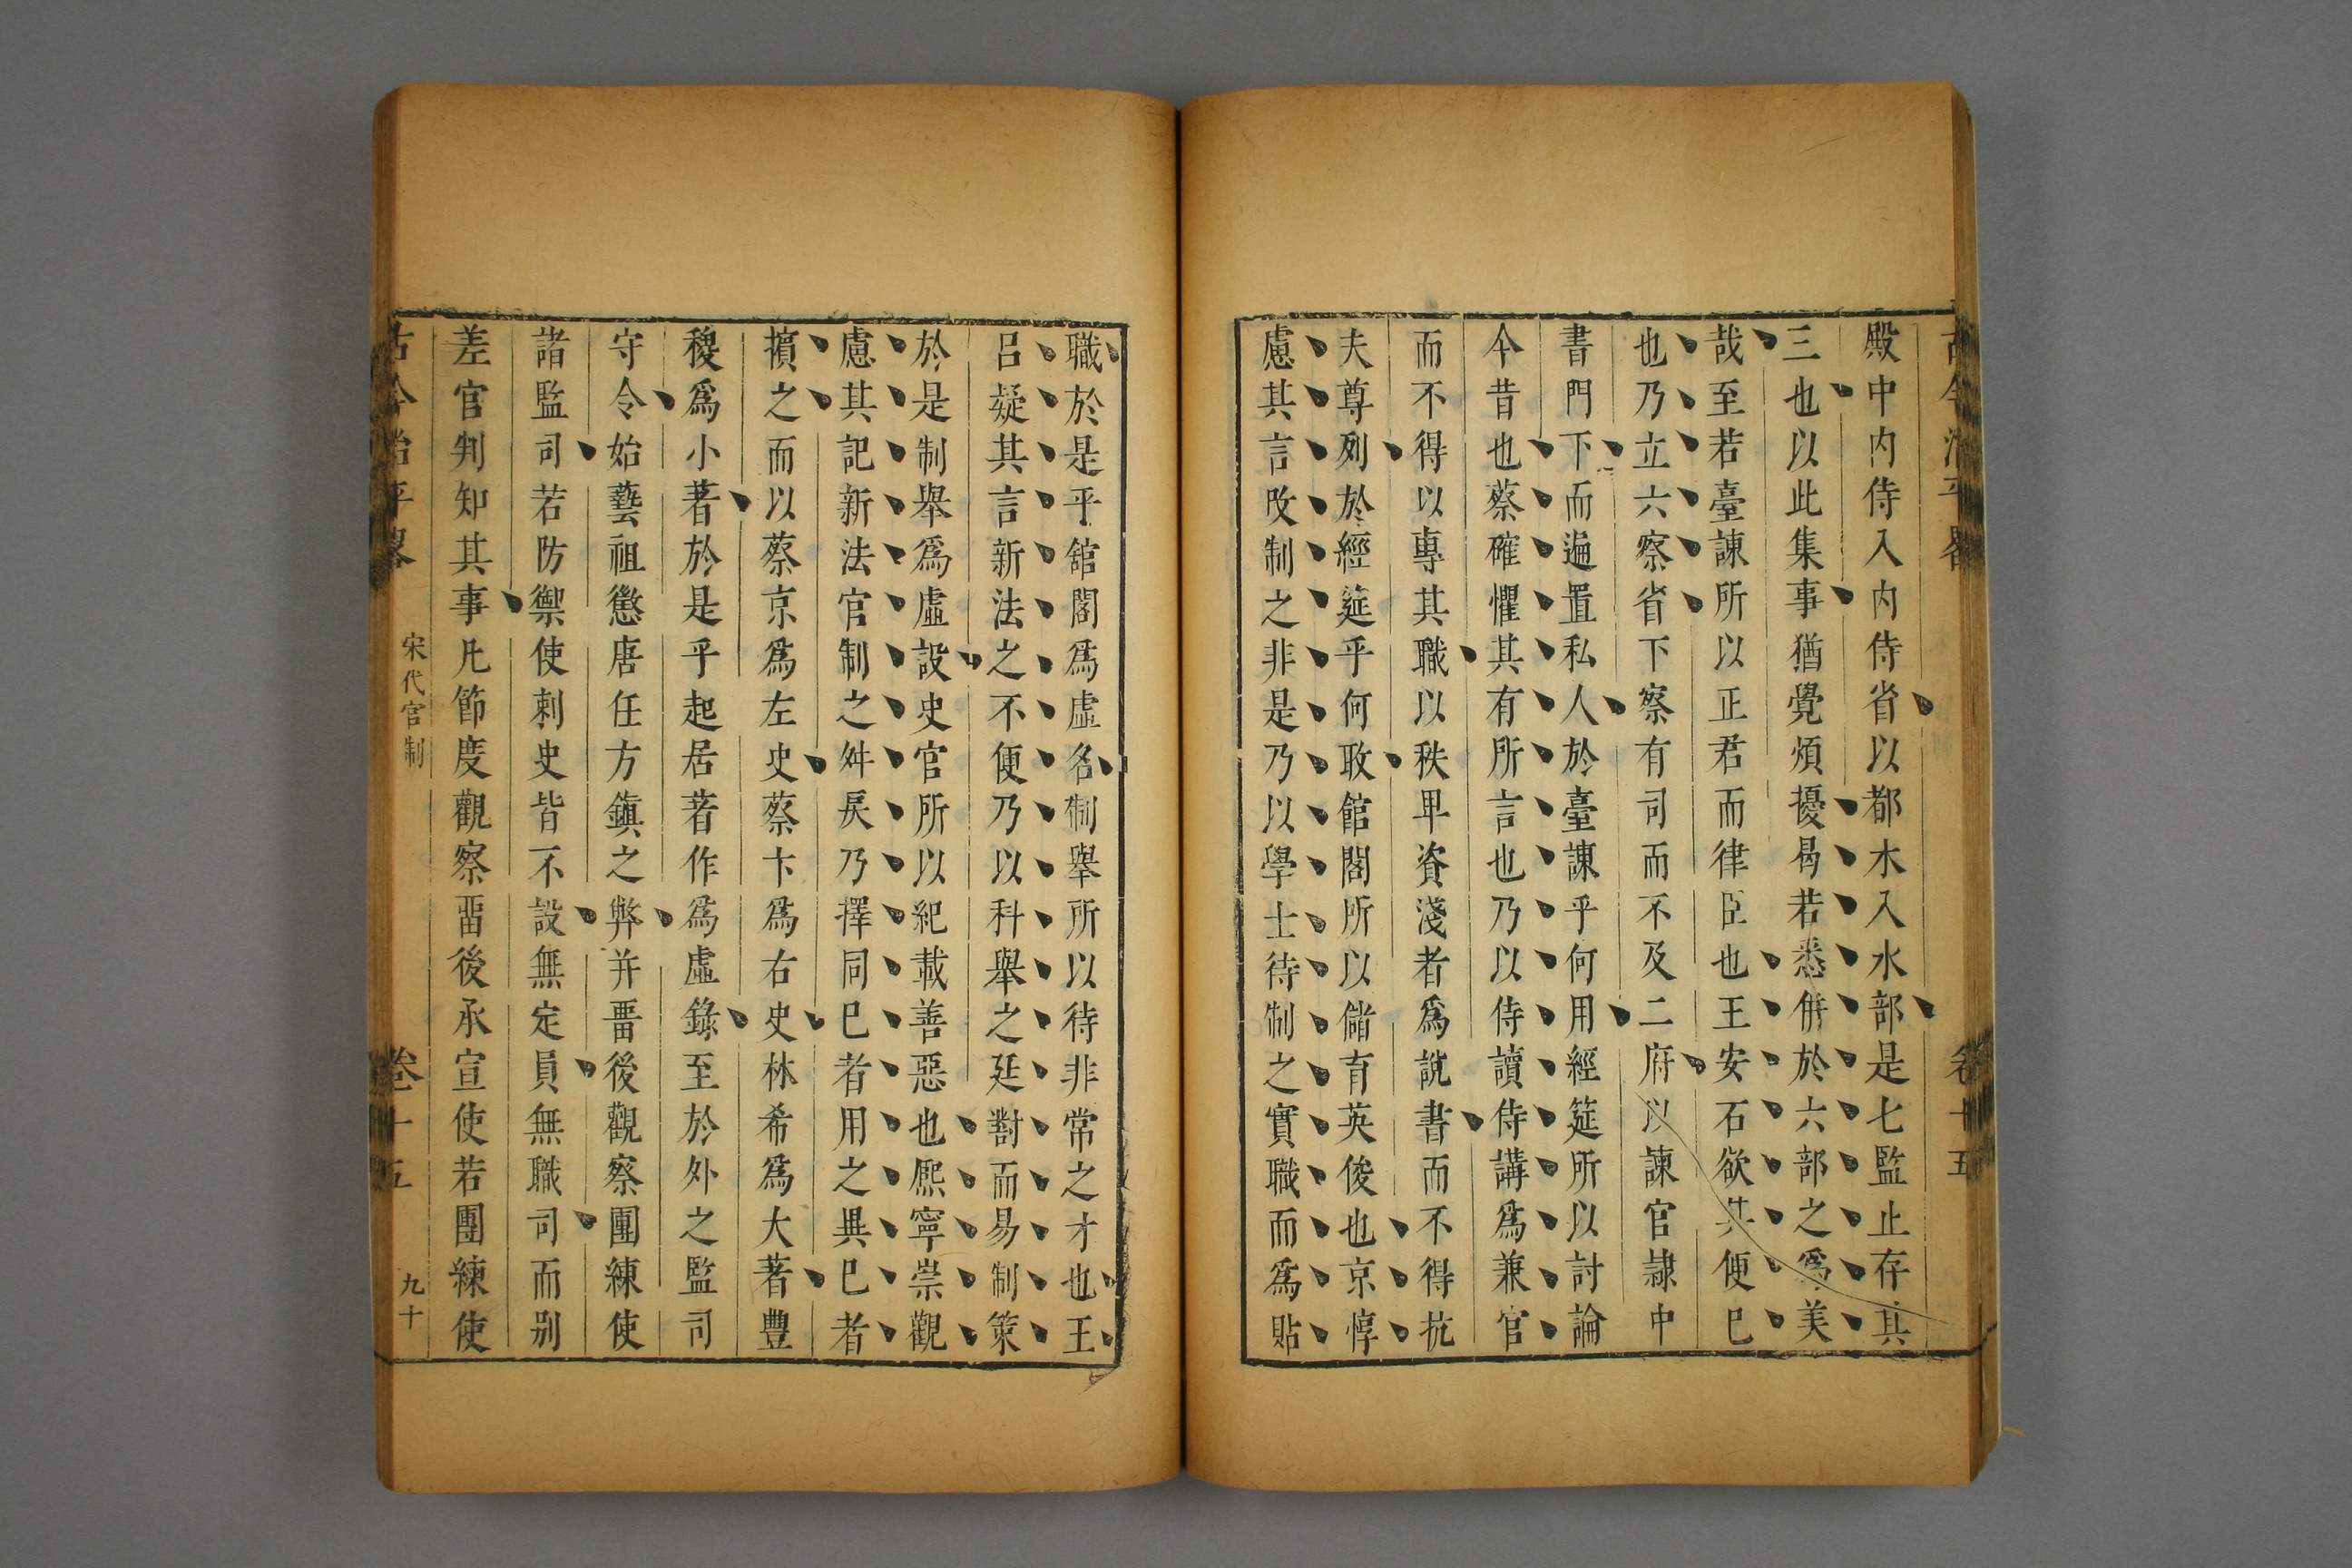 殿中内侍入内侍省以都木入水部是七監止存其
三也以此集事猶覺煩擾曷若悉併於六部之爲美
哉至若臺諫所以正君而律臣也王安石欲其便已
也乃立六察省下察有司而不及二府以諫官隷中
書門下而遍置私人於臺諫乎何用經筵所以討論
今昔也蔡確懼其有所言也乃以侍讀侍講爲兼官
而不得以專其職以秩卑資淺者爲說書而不得抗
夫尊列於經筵乎何敢館閣所以儲育英俊也京惇
慮其言改制之非是乃以學士待制之實職而爲貼
職於是乎舘閣爲虛名制舉所以待非常之才也王
呂疑其言新法之不便乃以科舉之廷對而易制策
於是制舉爲虛設史官所以紀載善惡也熈寧崇觀
慮其記新法官制之舛戾乃擇同巳者用之異巳者
擯之而以蔡京爲左史蔡卞爲右史林希爲大著豐
稷爲小著於是乎起居著作爲虛錄至於外之監司
守令始藝祖懲唐任方鎮之弊并畱後觀察團練使
諸監司若防禦使刺史皆不設無定員無職司而别
差官判知其事凡節度觀察畱後承宣使若團練使
古今治平畧
宋代官制
卷十五
九十